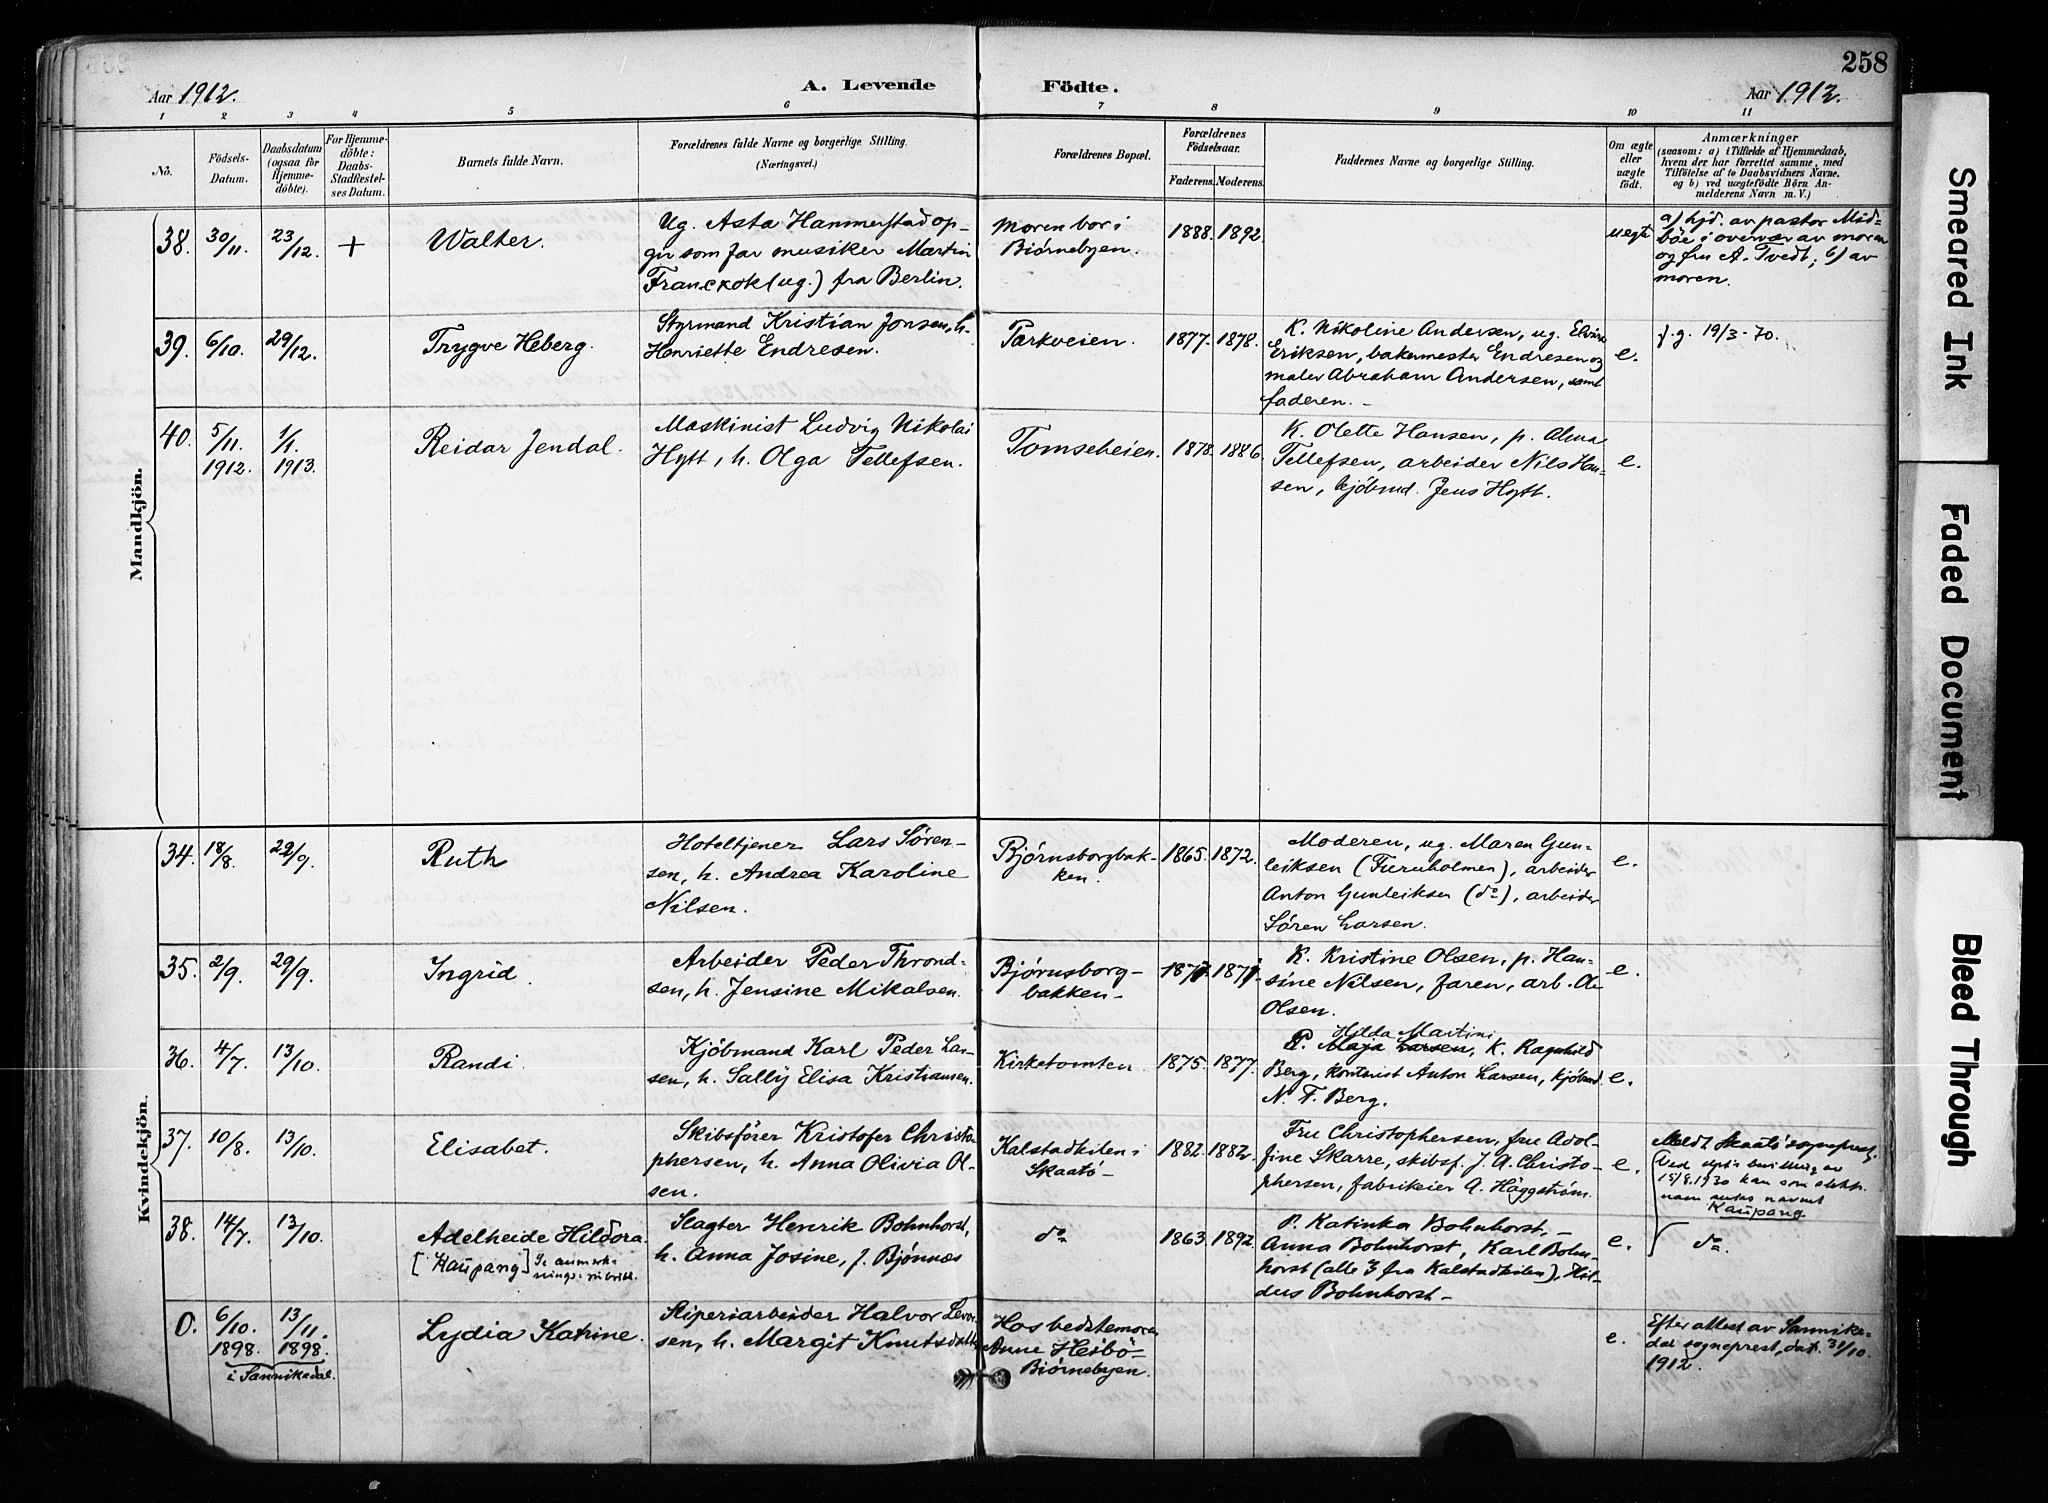 258
Aar 1912.
A. Levende Födte.
Aar 1912.
1 2 3 4 5 6 7 8 9 10 11
No.
Födsels-
Datum.
Daabsdatum
(ogsaa for
Hjemme-
döbte).
For Hjemme-
döbte:
Daabs-
Stadfæstel-
ses Datum.
Barnets fulde Navn.
Forældrenes fulde Navne og borgerlige Stilling.
(Næringsvei.)
Forældrenes Bopæl.
Forældrenes
Födselsaar.
Faderens. Moderens.
Faddernes Navne og borgerlige Stilling.
Om ægte
eller
uægte
födt.
Anmærkninger
(saasom: a) i Tilfælde af Hjemmedaab,
hvem der har forrettet samme, med
Tilföielse af to Daabsvidners Navne,
og b) ved uægtefödte Börn An-
melderens Navn m. V.)
Mandkjön.
38.
30/11.
23/12.
+
Walter.
Ug. Asta Hammerstad op-
gir som far musiker Martin
Franckok (ug.) fra Berlin.
Moren bor i
Biørnebyen.
1888. 1892.
uegt
a) hjd. av pastor Mid-
böe i overvær av moren
og fru A. Tvedt; b) av
moren.
39.
6/10.
29/12.
Trygve Heberg.
Styrmand Kristian Jonsen, h.
Henriette Endresen.
Parkveien.
1877. 1878.
K. Nikoline Andersen, ug. Elvira
Eriksen, bakermester Endresen og
maler Abraham Andersen, samt
faderen. -
e.
f.g. 19/3-70.
40.
5/11.
1912.
1/1.
1913.
Reidar Jendal.
Maskinist Ludvig Nikolai
Hytt, h. Olga Tellefsen.
Tomseheien.
1878. 1886.
K. Olette Hansen, p. Alma
Tellefsen, arbeider Nils Han-
sen, kjöbmd. Jens Hytt.
e.
Kvindekjön.
34.
18/8.
22/9.
Ruth
Hoteltjener Lars Søren-
sen, h. Andrea Karoline
Nilsen.
Bjørnsborgbak-
ken.
1865. 1872.
Moderen, ug. Maren Gun-
leiksen (Furuholmen), arbeider
Anton Gunleiksen (do), arbeider
Sören Larsen.
e.
35.
2/9.
29/9.
Ingrid.
Arbeider Peder Thrond-
sen, h. Jensine Mikalsen.
Bjørnsborg-
bakken-
K. Kristine Olsen, p. Han-
sine Nilsen, faren, arb.
Olsen.
e.
36.
4/7.
13/10.
Randi.
Kjöbmand Karl Peder Lar-
sen, h. Sally Elisa Kristiansen.
Kirketomten.
1875. 1877.
Hilda Martini
P. Maja Larsen, K. Ragnhild
Berg, kontorist Anton Larsen, kjöbmd.
N. F. Berg.
e.
37.
10/8.
13/10.
Elisabet.
Skibsförer Kristofer Christo-
phersen, h. Anna Olivia Ol-
sen.
Kalstadkilen i
Skaatö-
1882. 1882.
Fru Christophersen, fru Adol-
fine Skarre, skibsf. J. A. Christo-
phersen, fabrikeier A. Häggström.
e.
Meldt Skaatö sogneprest.
Ved dpts bevilling av
15/8.1930 kan som slekts-
navn antas navnet
Kaupang
38.
14/7.
13/10.
Adelheide Hildora.
[Kaupang] Se anmerk-
nings-rubrikk.
Slagter Henrik Bohnhorst,
h. Anna Josine, f. Bjønnes
do
1863. 1892.
P. Katinka Bohnhorst, -
Anna Bohnhorst, Karl Bohn-
horst (alle 3 fra Kalstadkilen), Hil-
dus Bohnhorst-
e.
do.
0.
6/10.
1898.
13/11.
1898.
i Sannikedal.
Lydia Katrine.
Sliperiarbeider Halvor Levor-
sen, h. Margit Knutsdatter
Hos bedstemoren
Anne Heibö-
Biørnebyen.
e.
Efter attest av Sannike-
dal sogneprest, dat. 31/10.
1912.
Smeared Ink
Faded Document
Bleed Through